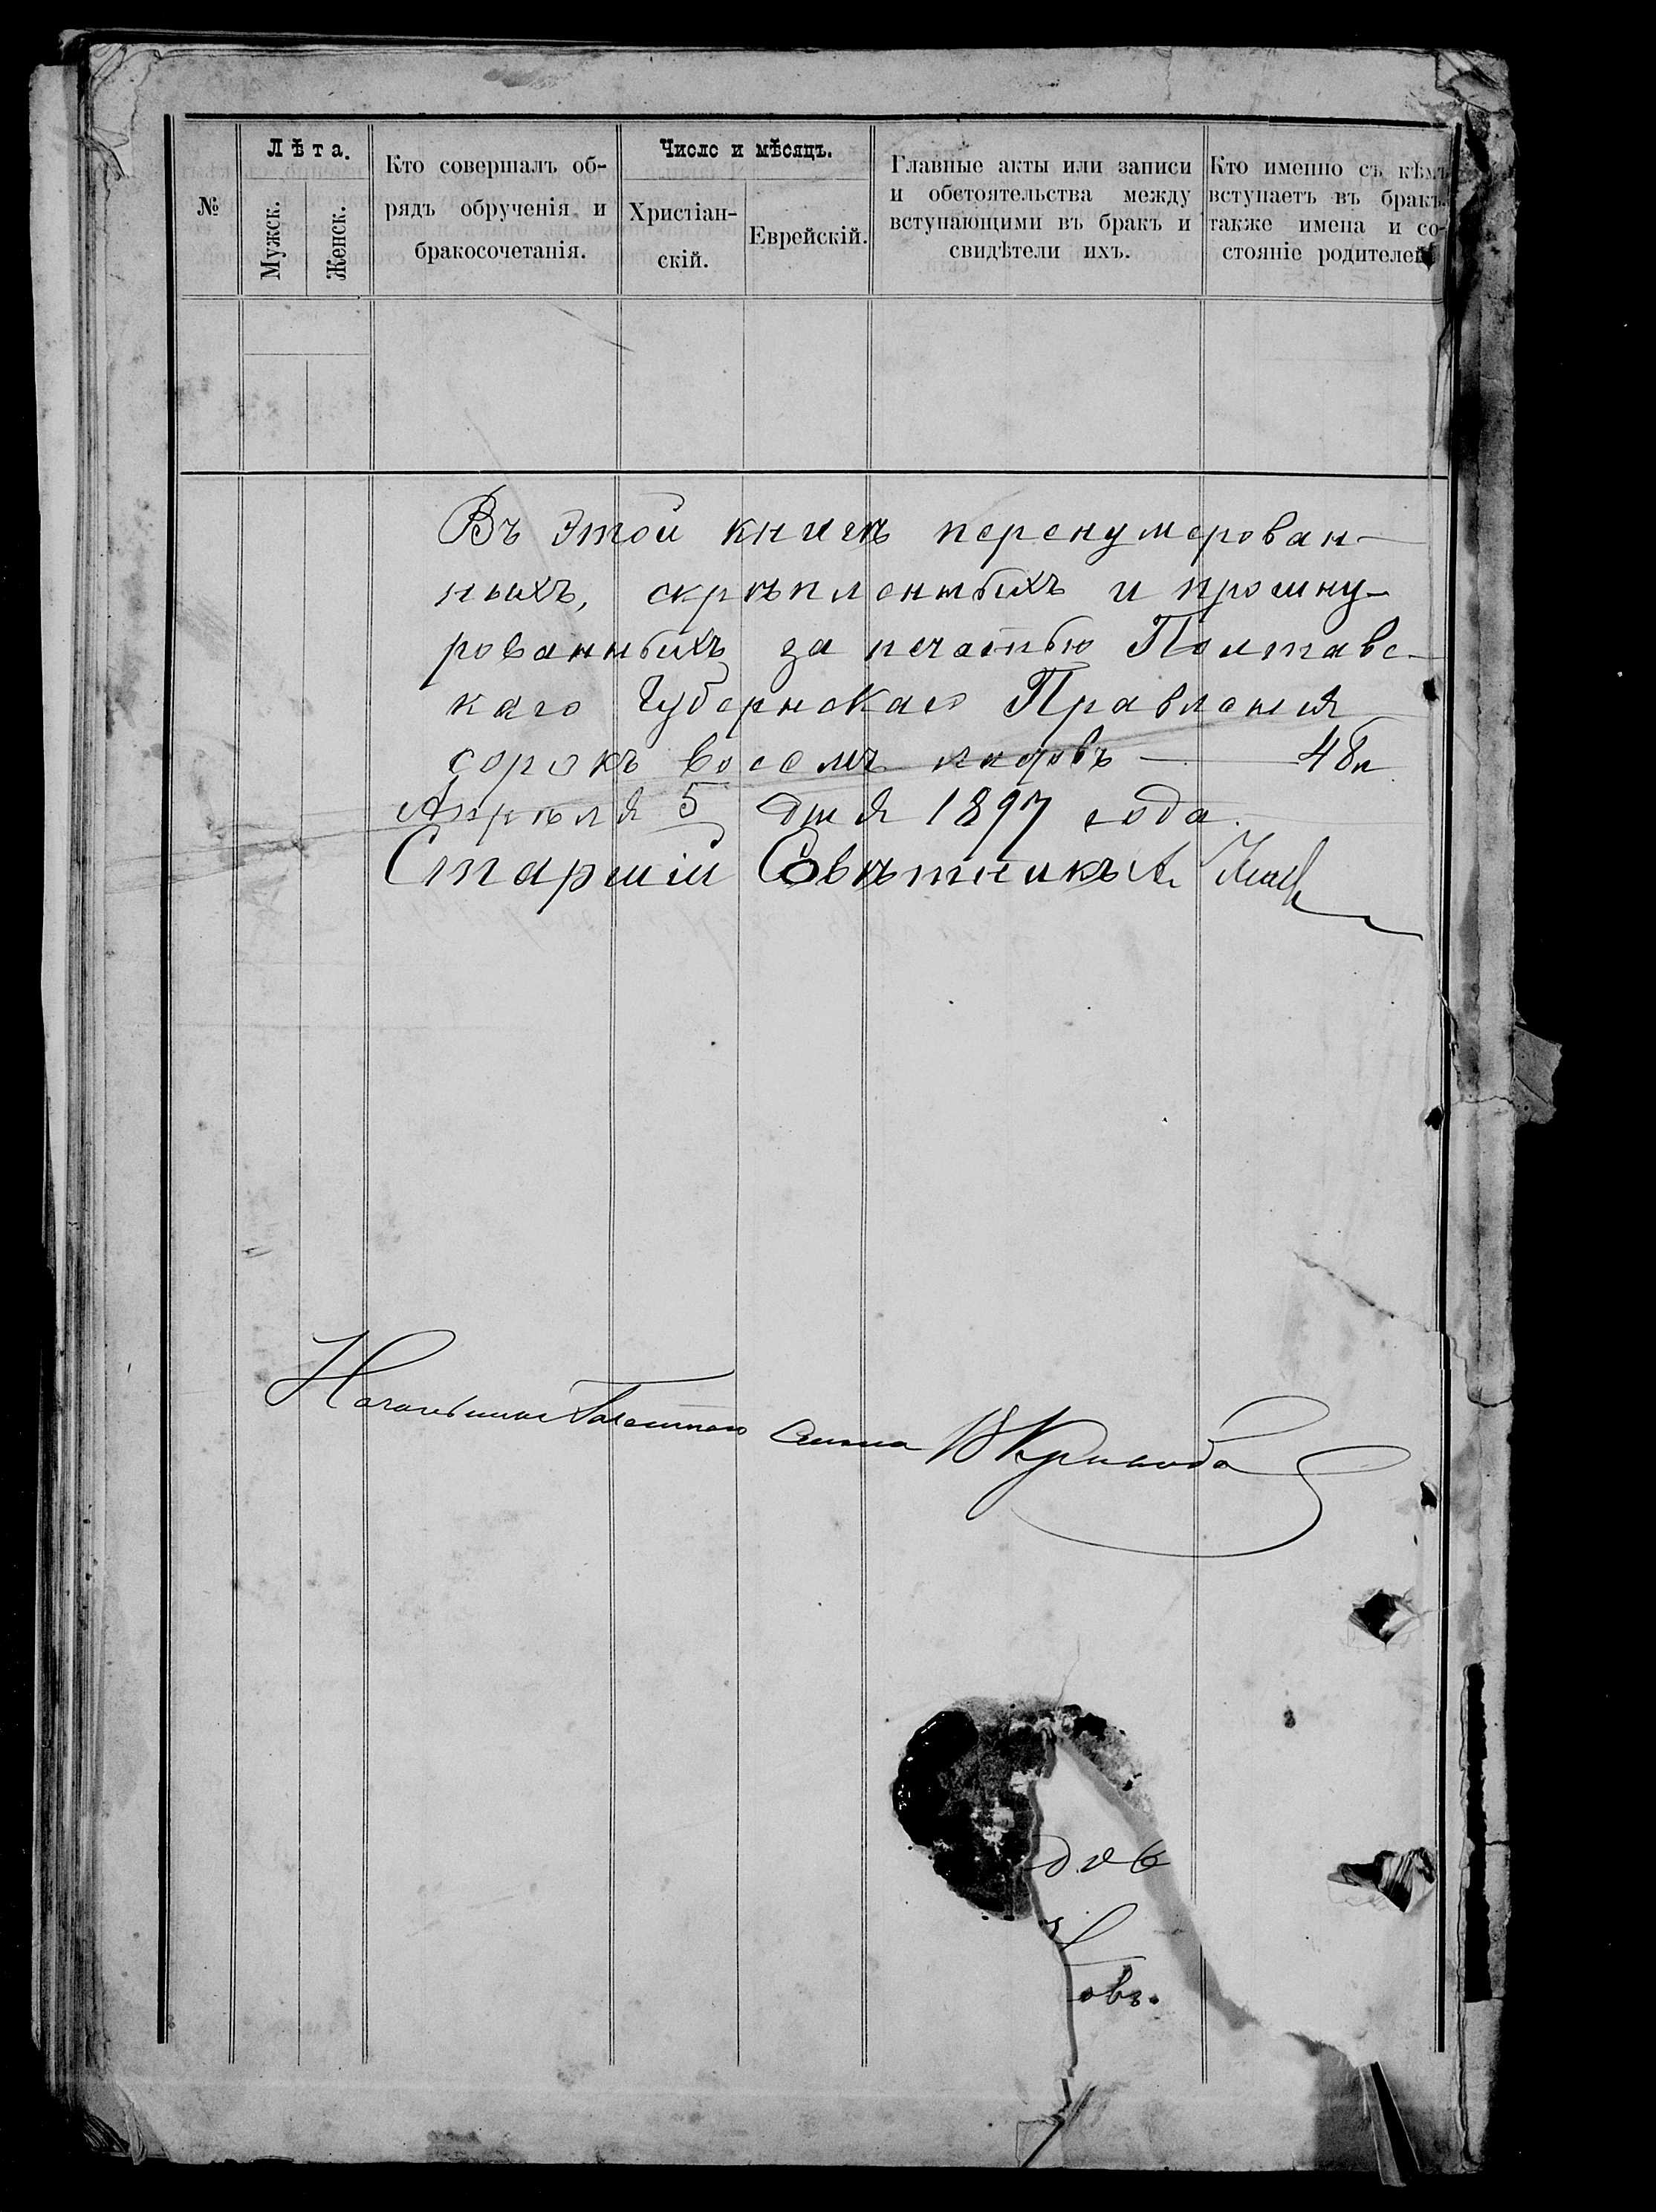 №
Лѣта.
Мужск.
Женск.
Кто совершалъ об-
рядъ обрученія и
бракосочетанія.
Число и мѣсяцъ.
Христіан-
скій.
Еврейскій.
Главные акты или записи
и обстоятельства между
вступающими въ бракъ и
свидѣтели ихъ.
Кто именно съ кѣмъ
вступаетъ въ бракъ.
также имена и со-
стояніе родителей
Въ этой книгѣ перенумерован-
ныхъ, скрѣпленныхъ и прошну-
рованныхъ за печатью Полтавс-
каго Губернскаго Правленія
сорокъ восемь листовъ — 48 л
Апрѣля 5 дня 1897 года.
Старшій Совѣтникъ А.
Начальникъ Газетнаго Стола В
дов
овъ.